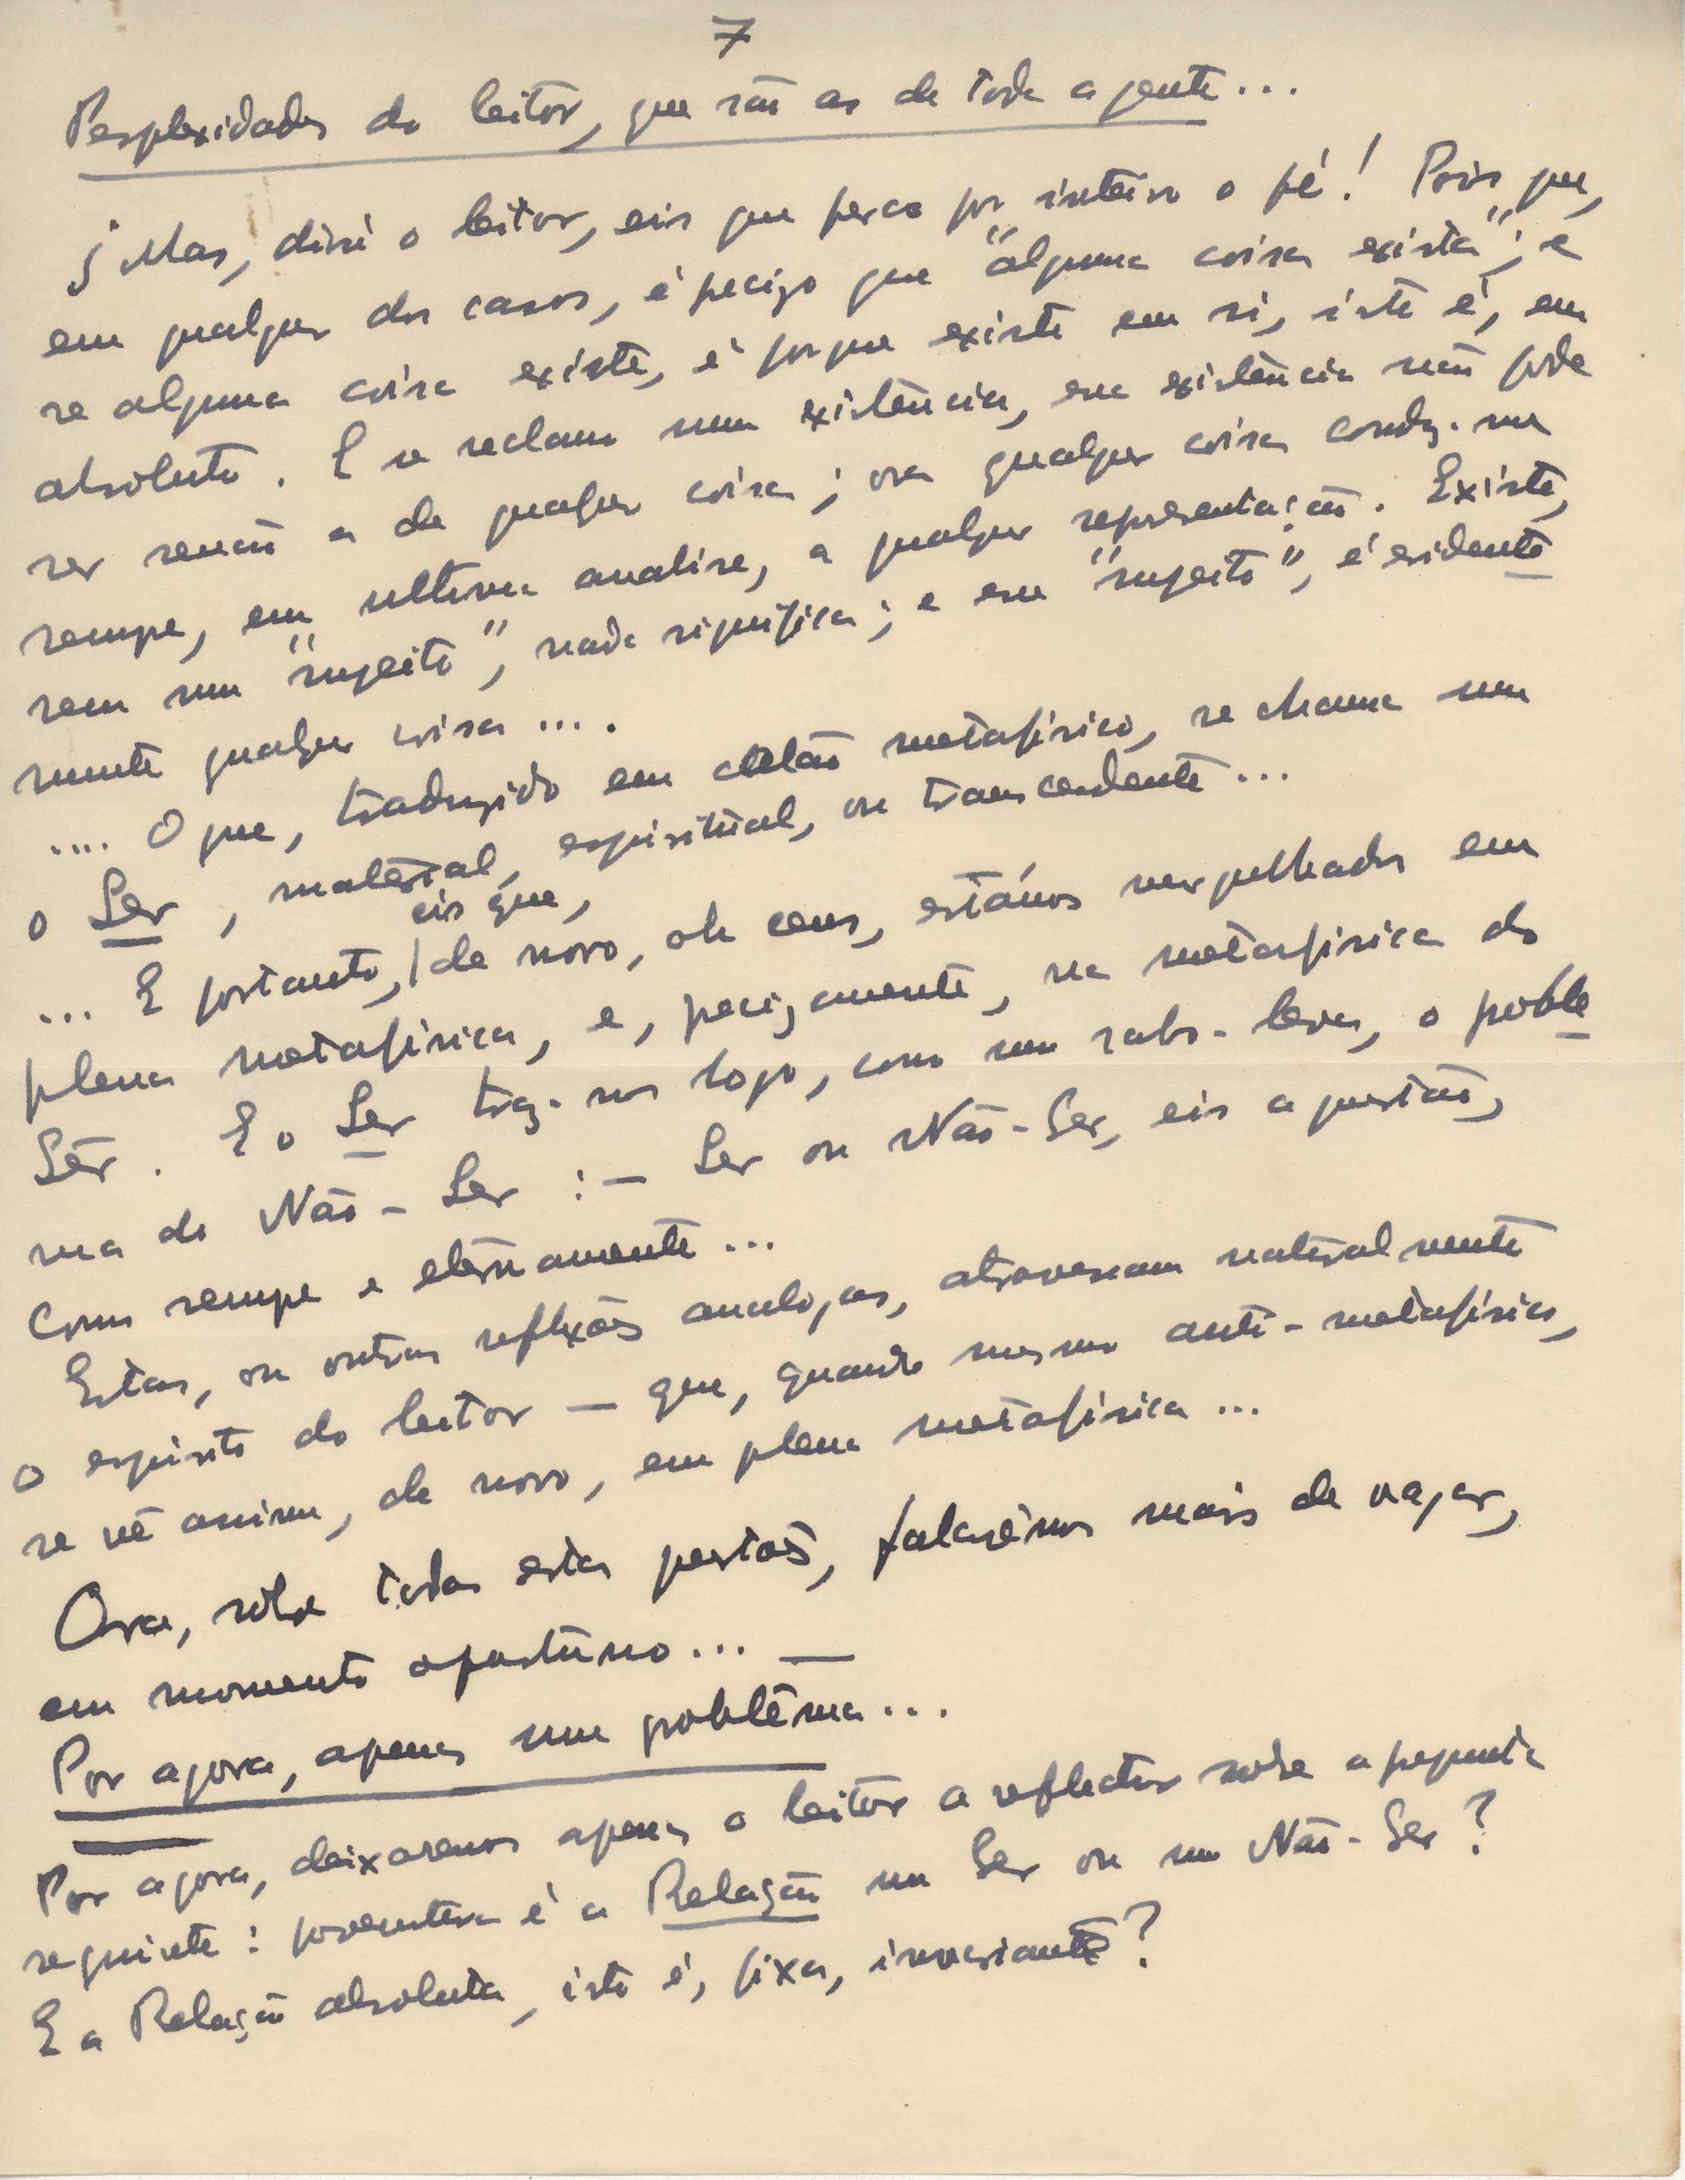 7
Perplexidades do leitor, que são as de toda a gente...
§ Mas, dirá o leitor, eis que perco por inteiro o pé! Pois que,
em qualquer dos casos, é precizo que "alguma coisa exista"; e
se alguma coisa existe, é porque existe em si, isto é, em
absoluto. E se reclamo uma existência, essa existência não pode
ser senão a de qualquer coisa; ora qualquer coisa conduz-me
sempre, em ultima analise, a qualquer representação. Existir,
sem um "sujeito", nada significa; e esse "sujeito", é evidente
mente qualquer coisa ....
.... O que, traduzido em calão metafísico, se chama um
o Ser, material, espiritual, ou transcendente...
... E portanto, eis que, de novo, oh ceus, estámos mergulhados em
plena metafísica, e, precizamente, na metafísica do
Sêr. E o Ser traz-nos logo, como um rabo-leva, o proble
ma do Não-Ser :- Ser ou Não-Ser, eis a questão,
como sempre e etérnamente...
Estas, ou outras reflexões analogas, atravessam naturalmente
o espirito do leitor - que, quando mesmo anti-metafísico,
se vê assim, de novo, em plena metafísica...
Ora, sobre todas estas questões, falarêmos mais de vagar,
em momento oportuno... —
Por agora, apenas um problêma...
Por agora, deixaremos apenas o leitor a reflectir sobre a pergunta
seguinte: porventura é a Relação um Ser ou um Não-Ser?
E a Relação absoluta, isto é, fixa, invariante?